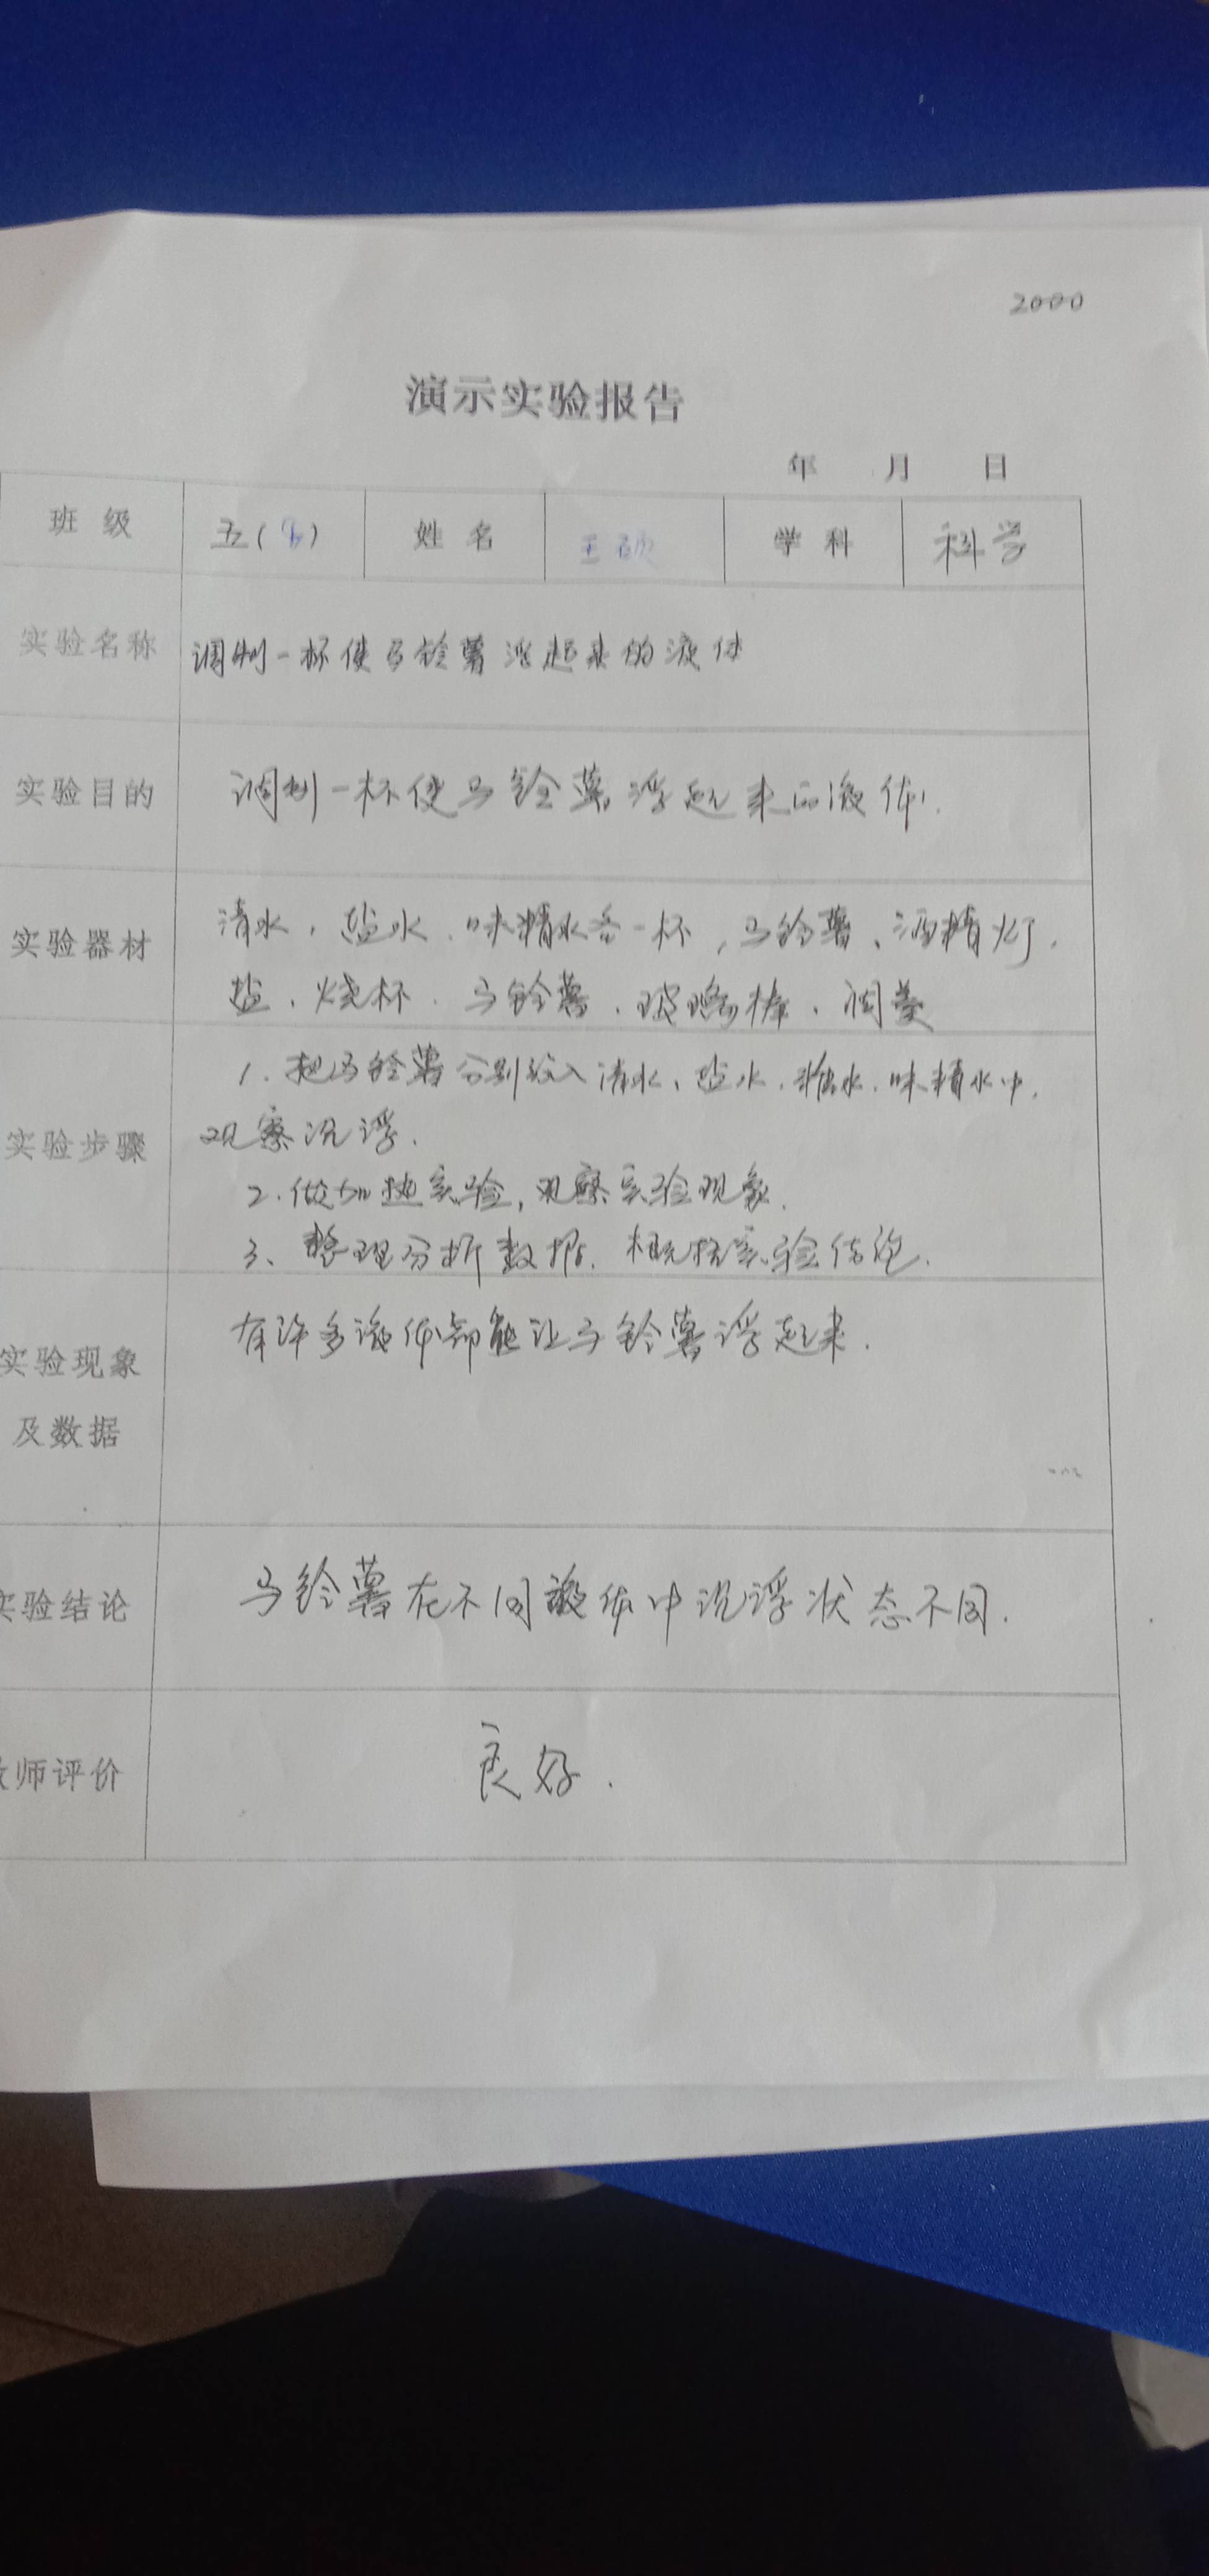 2000
演示实验报告
年 月 日
班 级 五( ) 姓 名 王硕 学 科 科学
实验名称 调制一杯使马铃薯浮起来的液体
实验目的 调制一杯使马铃薯浮起来的液体.
实验器材 清水、盐水、味精水各一杯,马铃薯、酒精灯、
盐、烧杯、马铃薯、玻璃棒、调羹
实验步骤 1. 把马铃薯分别放入清水、盐水、糖水、味精水中,
观察沉浮.
2. 做加热实验,观察实验现象.
3、整理分析数据、概括实验结论.
实验现象 有许多液体都能让马铃薯浮起来.
及数据
实验结论 马铃薯在不同液体中沉浮状态不同.
师评价 良好.